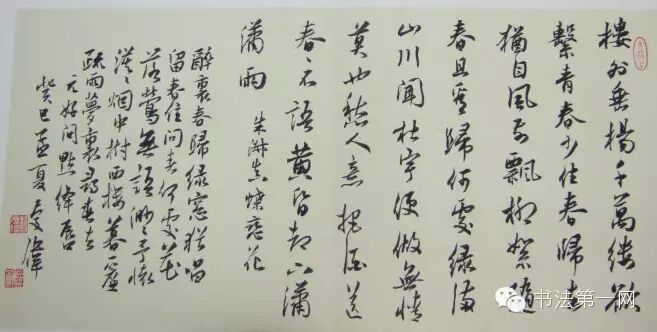 樓外垂楊千萬縷欲
繫青春少住春歸去
猶自風前飄柳絮隨
春且看歸何處綠滿
山川聞杜宇便做無情
莫也愁人意把酒送
春〻不語黃昏却下瀟
瀟雨 朱淑真蝶戀花
醉裏春歸綠窓猶唱
留春住問春何處花
落鶯無語渺〻予懷
漠〻烟中樹西樓暮一簾
疏雨夢裏尋春去
元好問點絳唇
癸巳孟夏
书法第一网